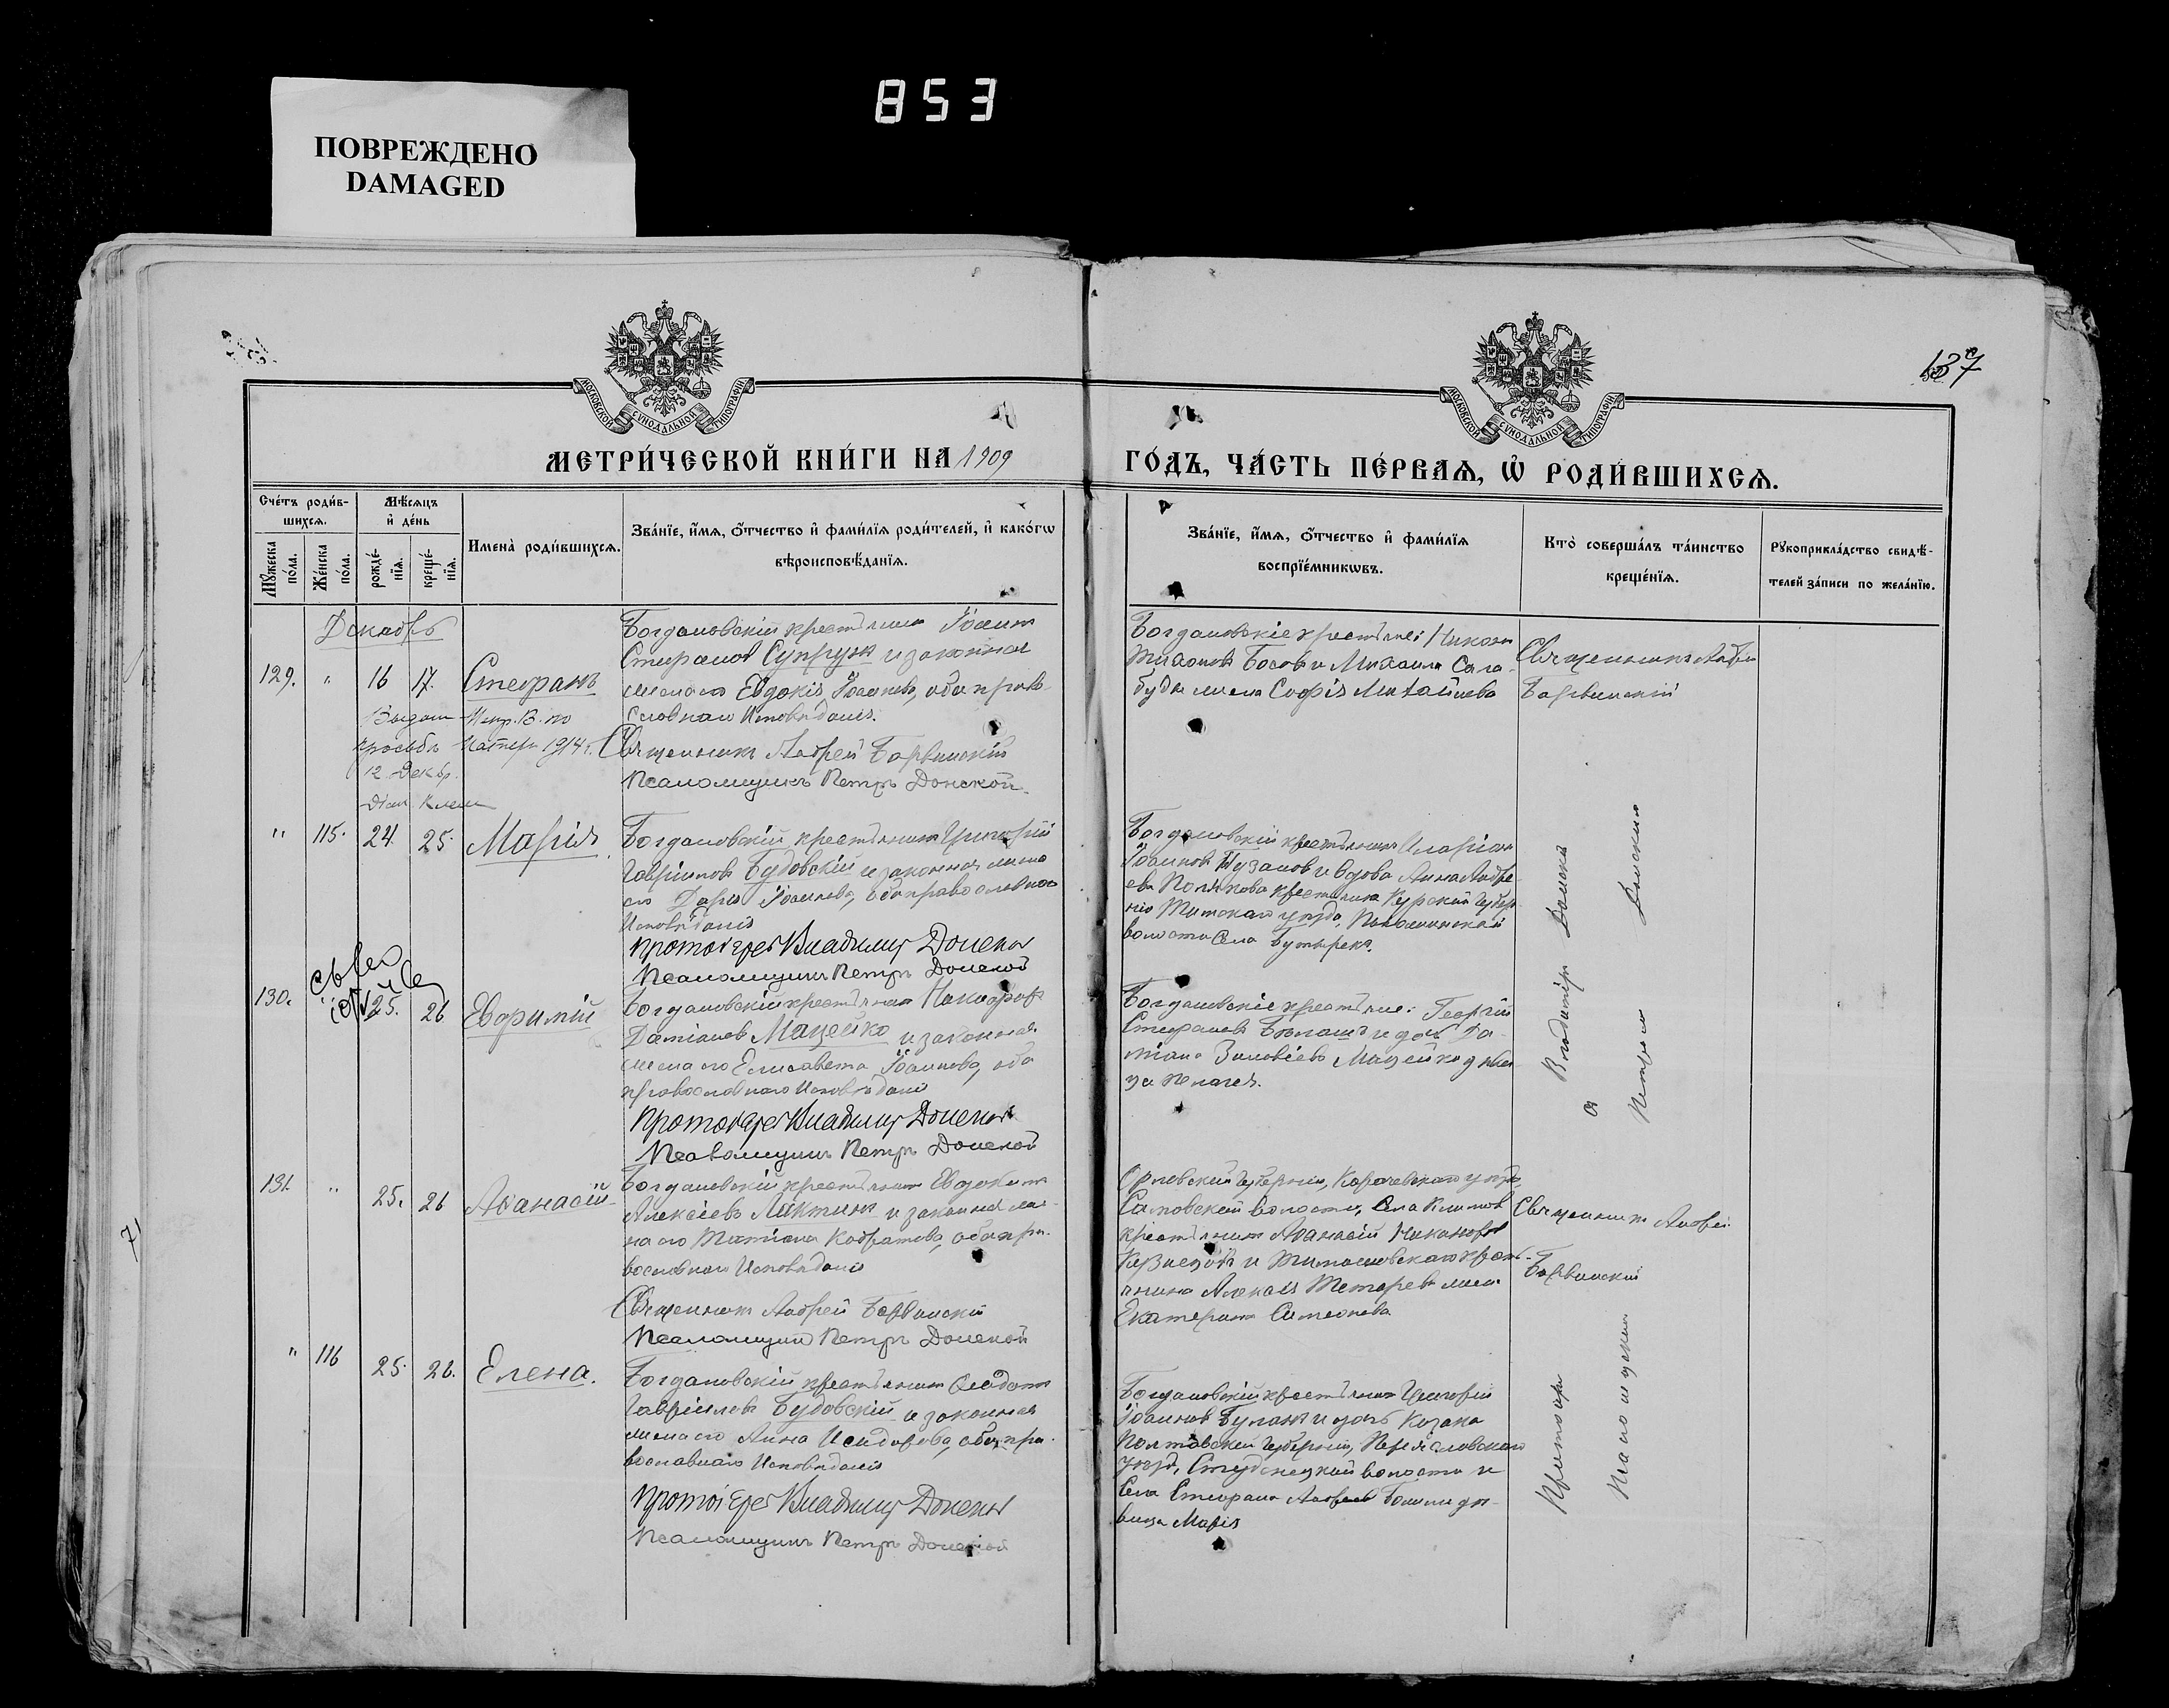 853
ПОВРЕЖДЕНО
DAMAGED
137
МОСКОВСКОЙ СѴНОДАЛЬНОЙ ТИПОГРАФІИ
МОСКОВСКОЙ СѴНОДАЛЬНОЙ ТИПОГРАФІИ
МЕТРИ́ЧЕСКОЙ КНИ́ГИ НА 1909
ГО́ДЪ, ЧА́СТЬ ПЕ́РВАѦ, Ѡ҆ РОДИ́ВШИХСѦ.
Сче́тъ роди́в-
шихсѧ.
Мꙋ́жеска
по́ла.
Же́нска
по́ла.
Мѣ́сѧцъ
и҆ де́нь
рожде́-
нїѧ.
креще́-
нїѧ.
Имена̀ роди́вшихсѧ.
Зва́нїе, и҆́мѧ, ѻ҆́тчество и҆ фами́лїѧ роди́телей, и҆ како́гѡ
вѣроисповѣ́данїѧ.
Зва́нїе, и҆́мѧ, ѻ҆́тчество и҆ фами́лїѧ
воспрїе́мникѡвъ.
Кто̀ соверша́лъ та́инство
креще́нїѧ.
Рꙋкоприкла́дство свидѣ́-
телей за́писи по жела́нїю.
Декабрь
129. " 16 17. Стефанъ
Богдановскій крестьянинъ Іоаннъ
Стефановъ Супрунъ и законная
жена его Евдокія Іоаннова, оба право-
славнаго Исповѣданія.
Священникъ Андрей Барвинскій
Псаломщикъ Петръ Донской.
Выдана Метр. В. по
просьбѣ Матери 1914 г.
12 Декбр.
Богдановскіе крестьяне: Никонъ
Тихоновъ Босовъ и Михаила Сала-
буды жена Софія Матѳайнева
Священникъ Андрей
Барвинскій
" 115. 24. 25. Марія
Богдановскій крестьянинъ Григорій
Гавріиловъ Будовскій и законная жена
его Дарія Іоаннова, оба православнаго
Исповѣданія
Протоіерей Владиміръ Донской
Псаломщикъ Петръ Донской
Богдановскій крестьянинъ Иларіонъ
Іоанновъ Тузановъ и вдова Анна Андре-
ева Полякова крестьянка Курской губер-
ніи Тимскаго уѣзда,
волости Села Бутырекъ.
130. " 25. 26. Евѳимій
Богдановскій крестьянинъ Никифоръ
Даміановъ Мацейко и законная
жена его Елисавета Іоаннова, оба
православнаго Исповѣданія
Протоіерей Владиміръ Донской
Псаломщикъ Петръ Донской
Богдановскіе крестьяне: Георгій
Стефановъ Блашъ и дочь Да-
міана Зиновіева Мацейко дѣви-
ца Пелагея.
131. " 25. 26 Аѳанасій
Богдановскій крестьянинъ Евдокимъ
Алексіевъ Ляктинъ и законная же-
на его Татіана Кодратова, оба пра-
вославнаго Исповѣданія
Священникъ Андрей Барвинскій
Псаломщикъ Петръ Донской
Орловской губерніи, Карачевскаго уѣзда,
волости, Села
крестьянинъ Аѳанасій Никаноровъ
Кузнецовъ и Тимошевскаго кресть-
янина Алексія Тетерева жена
Екатерина Симеонова
Священникъ Андрей
Барвинскій
" 116 25. 26. Елена.
Богдановскій крестьянинъ Ѳеодотъ
Гавріиловъ Будовскій и законная
жена его Анна Исидорова, оба пра-
вославнаго Исповѣданія
Протоіерей Владиміръ Донской
Псаломщикъ Петръ Донской
Богдановскій крестьянинъ Григорій
Іоанновъ Буланъ и дочь Козака
Полтавской губерніи, Переяславскаго
уѣзд, Студенецкой волости и
Села Стефана Андреева дѣ-
вица Марія
Протоіерей Владиміръ Донской
Псаломщикъ Петръ Донской